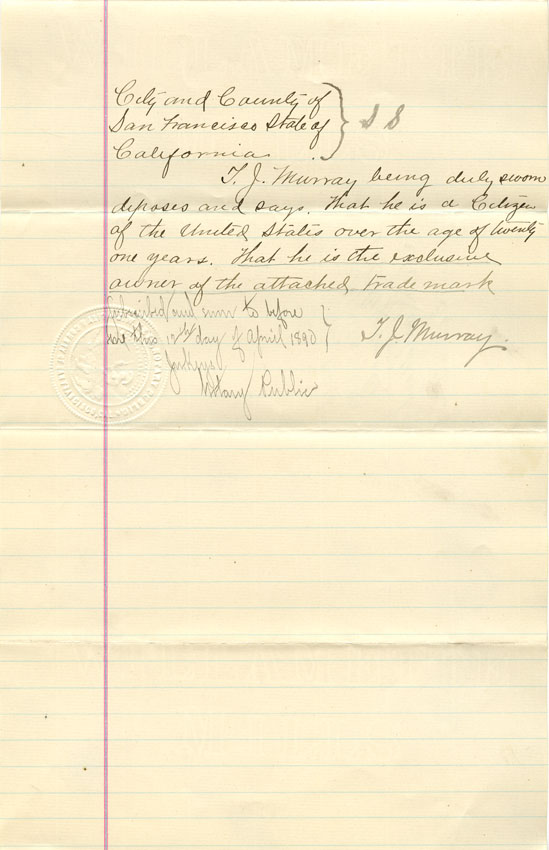 City and County of
San Francisco State of
California
} S S
T. J. Murray being duly sworn
deposes and says. That he is a Citizen
of the United States over the age of twenty
one years. That he is the exclusive
owner of the attached Trade mark
Subscribed and sworn to before
me this 12th day of April 1890 }
T. J. Murray.
Notary Public